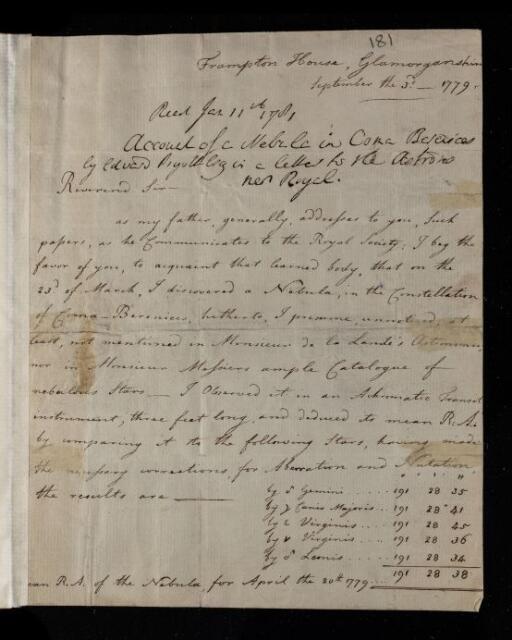 181
Frampton House, Glamorganshire
September the 3d — 1779.
Read Jan 11th 1781
Account of a Nebula in Coma Berenices
by Edward Pigott Esq in a letter to the Astrono
mer Royal.
Reverend Sir —
as my father, generally, addresses to you, Such
papers, as he Communicates to the Royal Society; I beg the
favor of you, to acquaint that learned body, that on the
23d of March, I discovered a Nebula, in the Constellation
of Coma-Berenices, hitherto, I presume, unnoticed; at
least, not mentioned in Monsieur de la Lande's Astronomy,
nor in Monsieur Messiers ample Catalogue of
nebulous Stars — I Observed it in an Achromatic Transit
instrument, three feet long, and deduced its mean R.A.
by comparing it to the following Stars, having made
the necessary corrections, for Aberration and Nutation,
the results are —
° ' "
by δ Gemini ..... 191 28 35
by γ Canis Majoris ... 191 28 41
by ε Virginis .... 191 28 45
by Virginis .... 191 28 36
by δ Leonis .... 191 28 34
ean R.A. of the Nebula for April the 20th 1779 .... 191 28 38